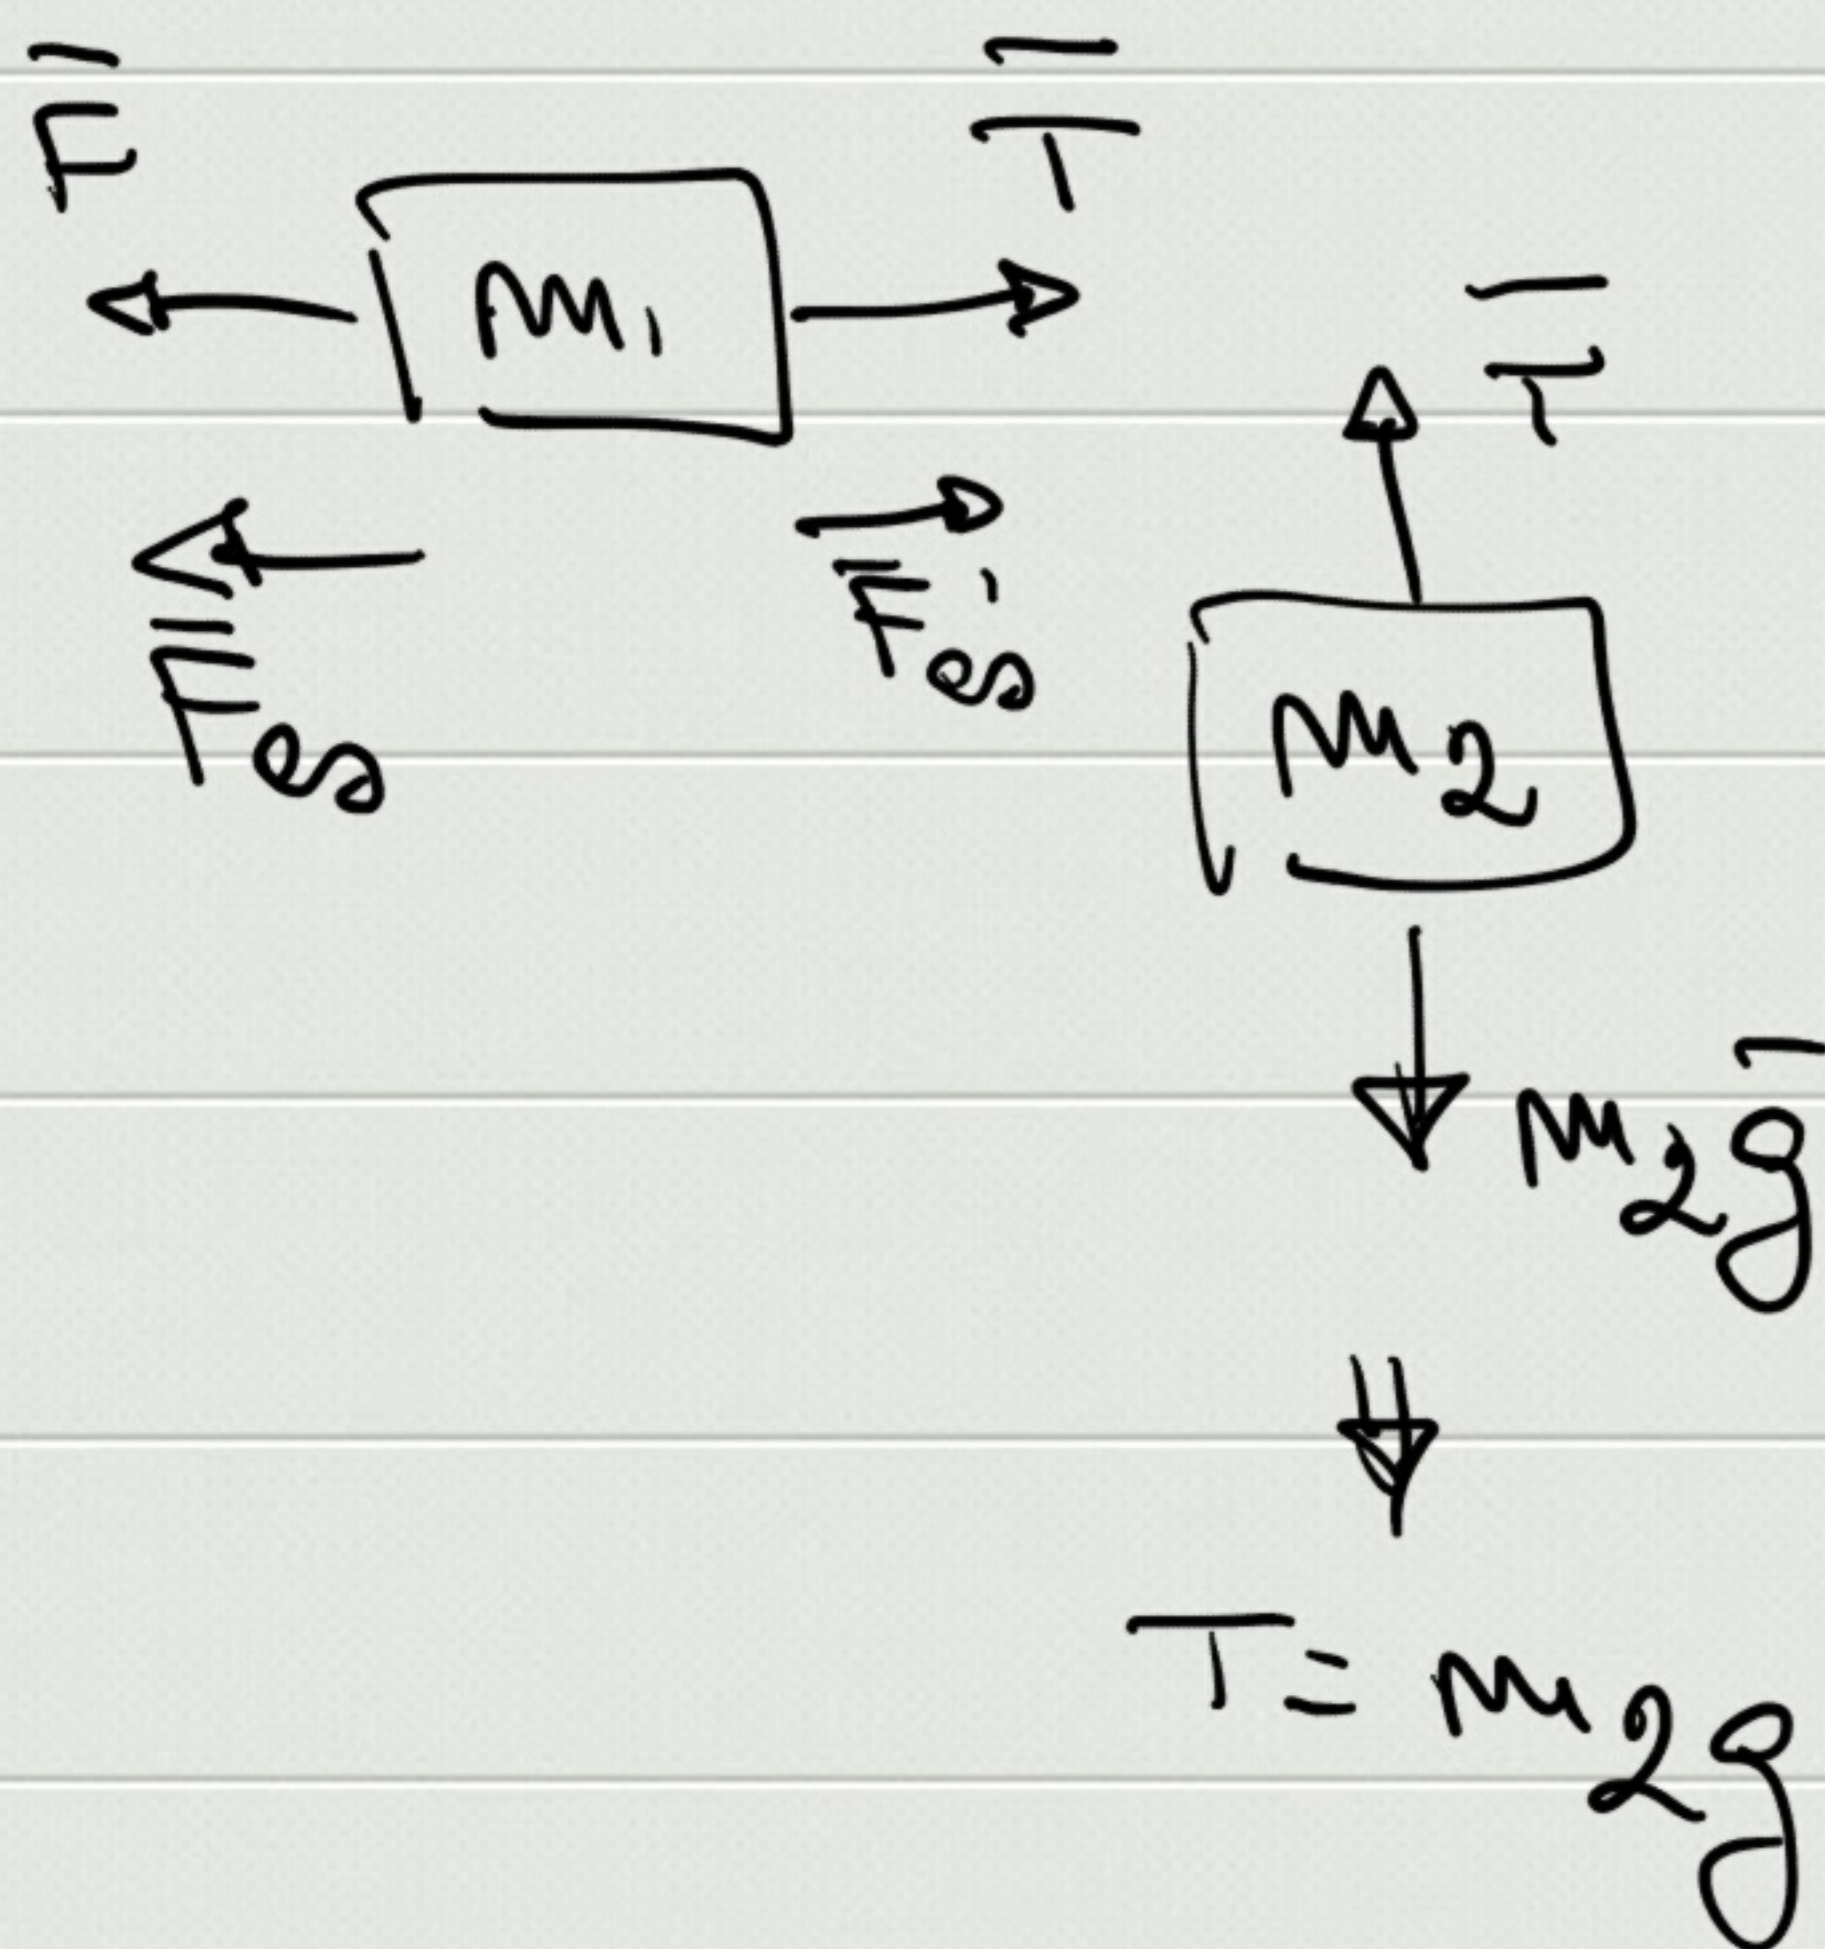 F̅ T̅
m₁ T̅
F̅es F̅'es
m₂
m₂g̅
T = m₂g